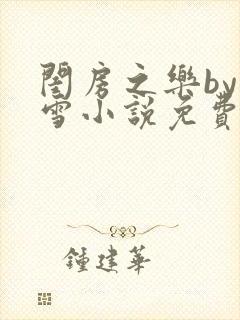 閨房之樂by
雪小說免費
鍾建華